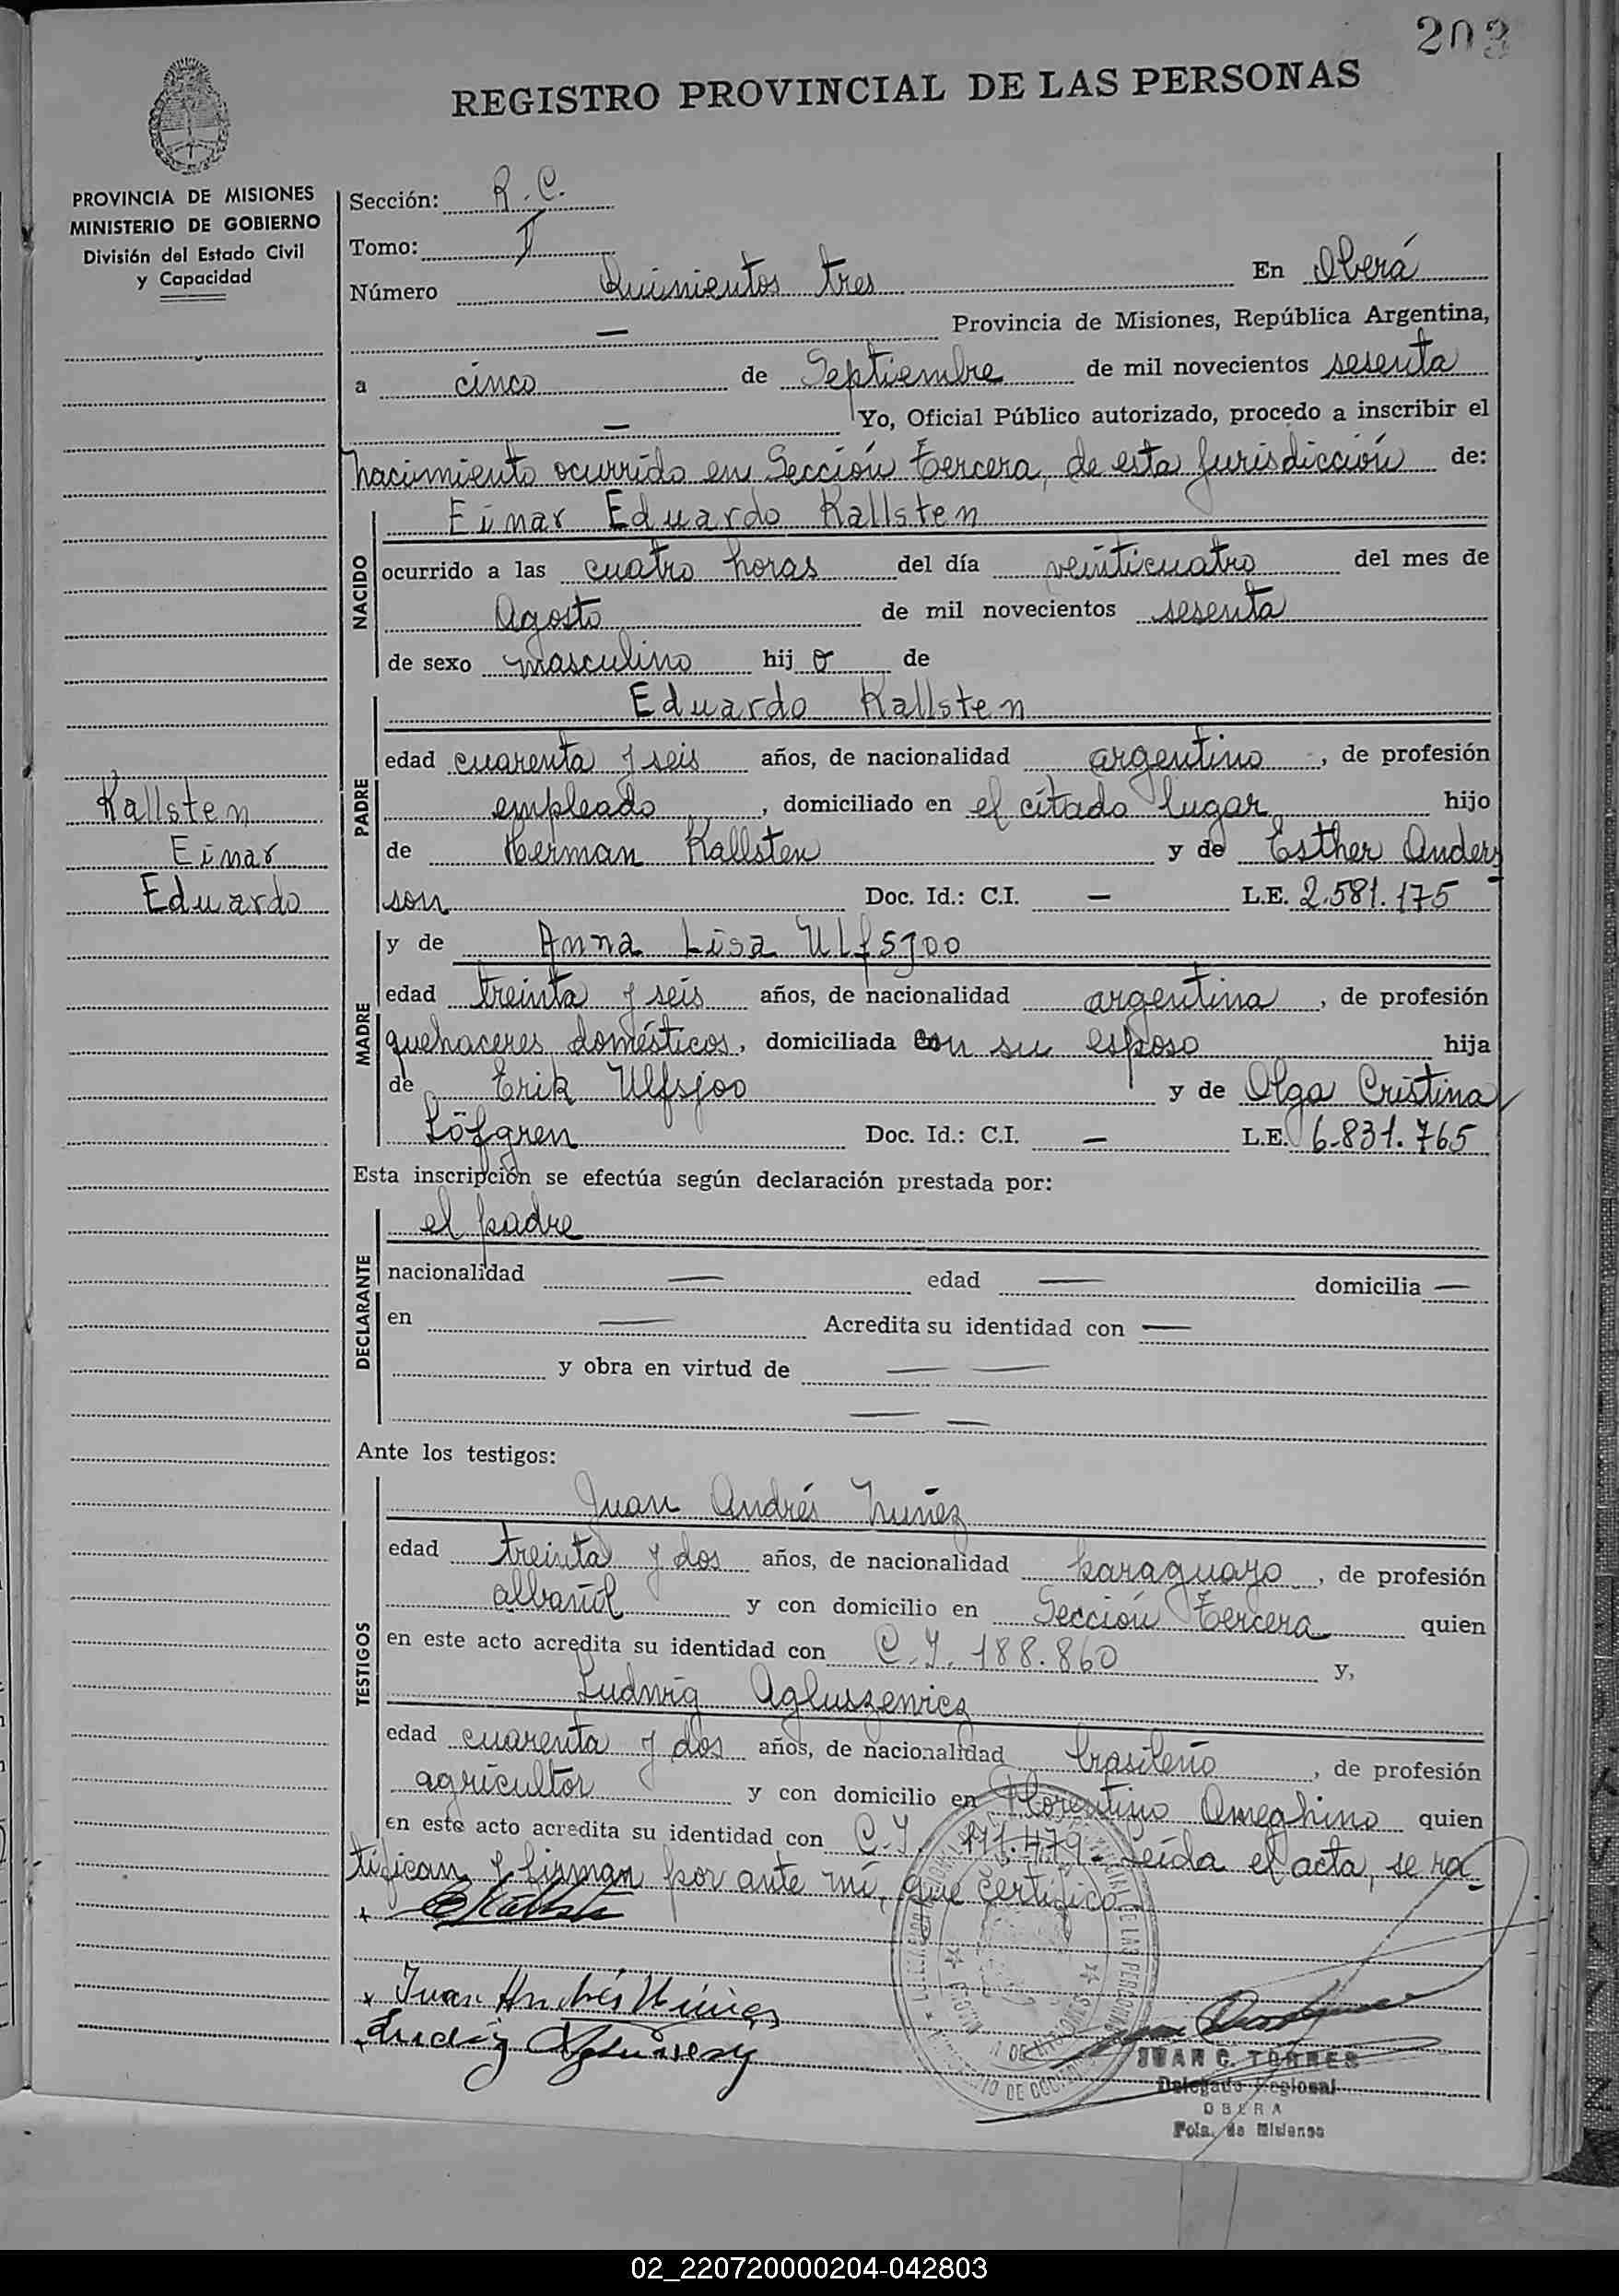 203
REGISTRO PROVINCIAL DE LAS PERSONAS
PROVINCIA DE MISIONES
MINISTERIO DE GOBIERNO
División del Estado Civil
y Capacidad
Kallsten
Einar
Eduardo
Sección: R. C.
Tomo: I
Número Quinientos tres En Oberá
— Provincia de Misiones, República Argentina,
a cinco de Septiembre de mil novecientos sesenta
— Yo, Oficial Público autorizado, procedo a inscribir el
nacimiento ocurrido en Sección Tercera, de esta Jurisdicción de:
NACIDO
Einar Eduardo Kallsten
ocurrido a las cuatro horas del día veinticuatro del mes de
Agosto de mil novecientos sesenta
de sexo masculino hij o de
PADRE
Eduardo Kallsten
edad cuarenta y seis años, de nacionalidad argentino -, de profesión
empleado, domiciliado en el citado lugar hijo
de Herman Kallsten y de Esther Anders-
son Doc. Id.: C.I. — L.E. 2.581.175
MADRE
y de Anna Lisa Ulfsjoo
edad treinta y seis años, de nacionalidad argentina, de profesión
quehaceres domésticos, domiciliada con su esposo hija
de Erik Ulfsjoo y de Olga Cristina
Löfgren Doc. Id.: C.I. — L.E. 6.831.765
Esta inscripción se efectúa según declaración prestada por:
DECLARANTE
el padre
nacionalidad — edad — domicilia —
en — Acredita su identidad con —
y obra en virtud de — —
— —
Ante los testigos:
TESTIGOS
Juan Andrés Nuñez
edad treinta y dos años, de nacionalidad paraguayo, de profesión
albañil y con domicilio en Sección Tercera quien
en este acto acredita su identidad con C.I. 188.860 y,
Ludwig Agluszewicz
edad cuarenta y dos años, de nacionalidad brasileño, de profesión
agricultor y con domicilio en Florentino Ameghino quien
en este acto acredita su identidad con C.I. 111.479.- Leída el acta, se ra-
tifican y firman por ante mí, que certifico.-
Juan Andrés Nuñez
JUAN C. TORRES
Delegado Regional
OBERA
Pcia. de Misiones
02_220720000204-042803